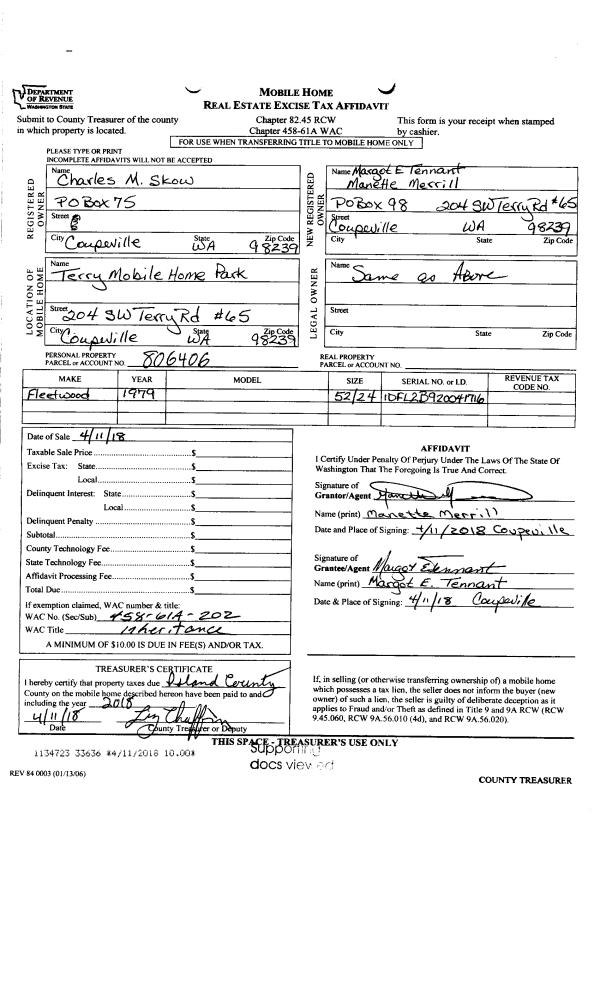 DEPARTMENT
OF REVENUE
WASHINGTON STATE
MOBILE HOME
REAL ESTATE EXCISE TAX AFFIDAVIT
Submit to County Treasurer of the county
in which property is located.
Chapter 82.45 RCW
Chapter 458-61A WAC
This form is your receipt when stamped
by cashier.
FOR USE WHEN TRANSFERRING TITLE TO MOBILE HOME ONLY
PLEASE TYPE OR PRINT
INCOMPLETE AFFIDAVITS WILL NOT BE ACCEPTED
REGISTERED OWNER
Name
Charles M. Skow
PO Box 75
Street
City Coupeville State WA Zip Code 98239
NEW REGISTERED OWNER
Name Margot E Tennant
Manette Merrill
PO Box 98 204 SW Terry Rd #65
Street
Coupeville WA 98239
City State Zip Code
LOCATION OF MOBILE HOME
Name
Terry Mobile Home Park
Street 204 SW Terry Rd #65
City Coupeville State WA Zip Code 98239
LEGAL OWNER
Name
Same as Above
Street
City State Zip Code
PERSONAL PROPERTY
PARCEL or ACCOUNT NO. 806406
REAL PROPERTY
PARCEL or ACCOUNT NO.
MAKE YEAR MODEL SIZE SERIAL NO. or I.D. REVENUE TAX CODE NO.
Fleetwood 1979 52/24
Date of Sale 4/11/18
Taxable Sale Price $
Excise Tax: State $
Local $
Delinquent Interest: State $
Local $
Delinquent Penalty $
Subtotal $
County Technology Fee $
State Technology Fee $
Affidavit Processing Fee $
Total Due $
If exemption claimed, WAC number & title:
WAC No. (Sec/Sub) 458-61A-202
WAC Title Inheritance
A MINIMUM OF $10.00 IS DUE IN FEE(S) AND/OR TAX.
AFFIDAVIT
I Certify Under Penalty Of Perjury Under The Laws Of The State Of
Washington That The Foregoing Is True And Correct.
Signature of
Grantor/Agent
Name (print) Manette Merrill
Date and Place of Signing: 4/11/2018 Coupeville
Signature of
Grantee/Agent Margot E Tennant
Name (print) Margot E. Tennant
Date & Place of Signing: 4/11/18 Coupeville
TREASURER'S CERTIFICATE
I hereby certify that property taxes due Island County
County on the mobile home described hereon have been paid to and
including the year 2018
4/11/18
Date County Treasurer or Deputy
If, in selling (or otherwise transferring ownership of) a mobile home
which possesses a tax lien, the seller does not inform the buyer (new
owner) of such a lien, the seller is guilty of deliberate deception as it
applies to Fraud and/or Theft as defined in Title 9 and 9A RCW (RCW
9.45.060, RCW 9A.56.010 (4d), and RCW 9A.56.020).
THIS SPACE - TREASURER'S USE ONLY
Supporting
docs viewed
1134723 33636 *4/11/2018 10.00*
REV 84 0003 (01/13/06)
COUNTY TREASURER